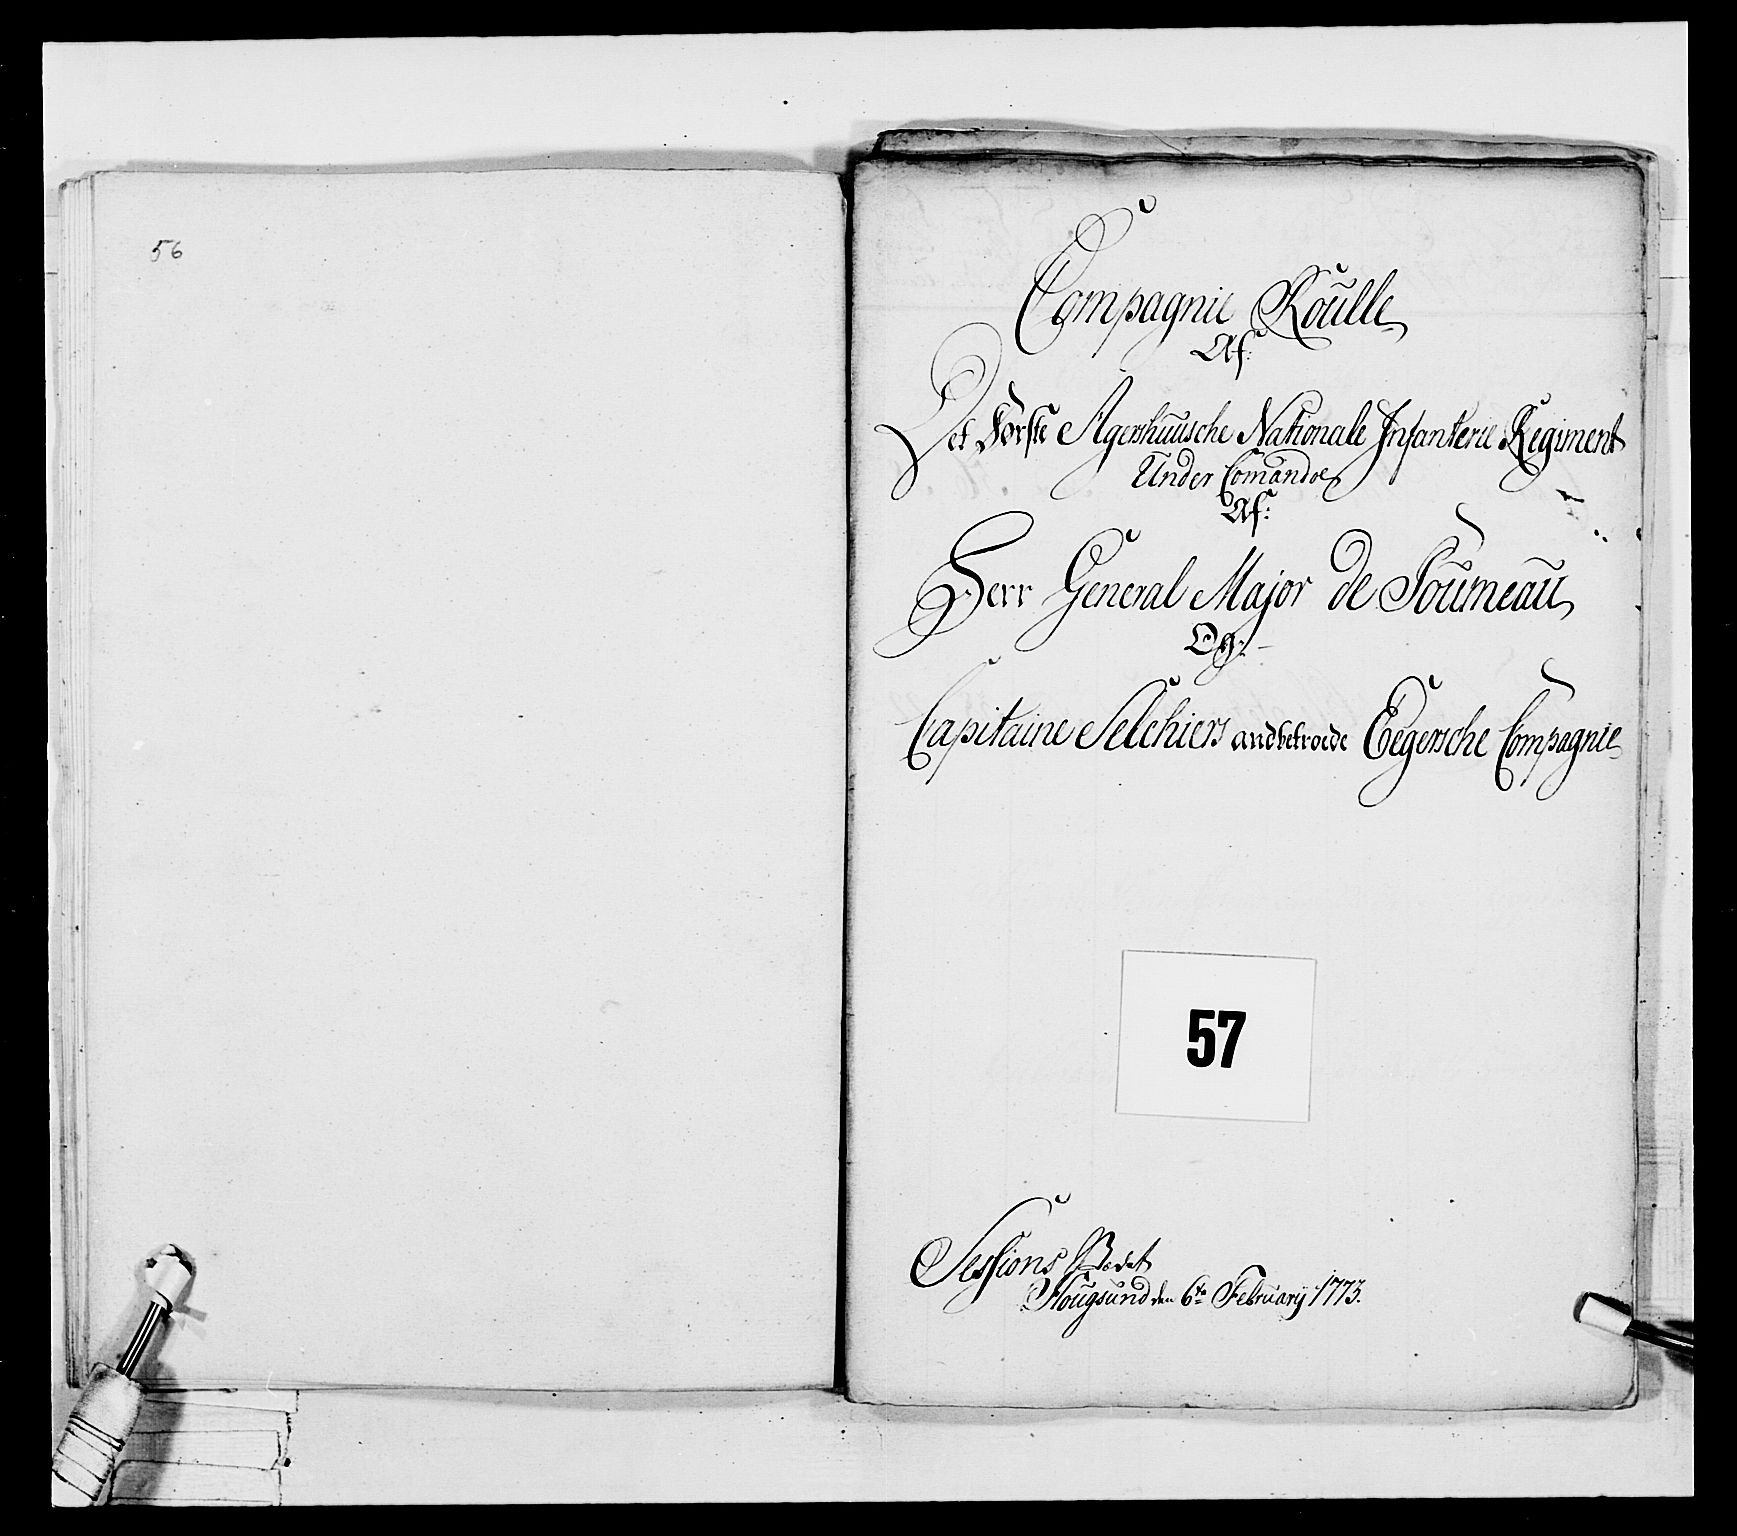 56
Compagnie Roulle
Af:
Det Første Agershuusche Nationale Infanterie Regiment
Under Comando
Af:
Herr General Major de Soumeau
Og:
Capitaine Selchiers andbetroede Eegersche Compagnie
57
Sessions Stædet
Hougsund den 6te February 1773.